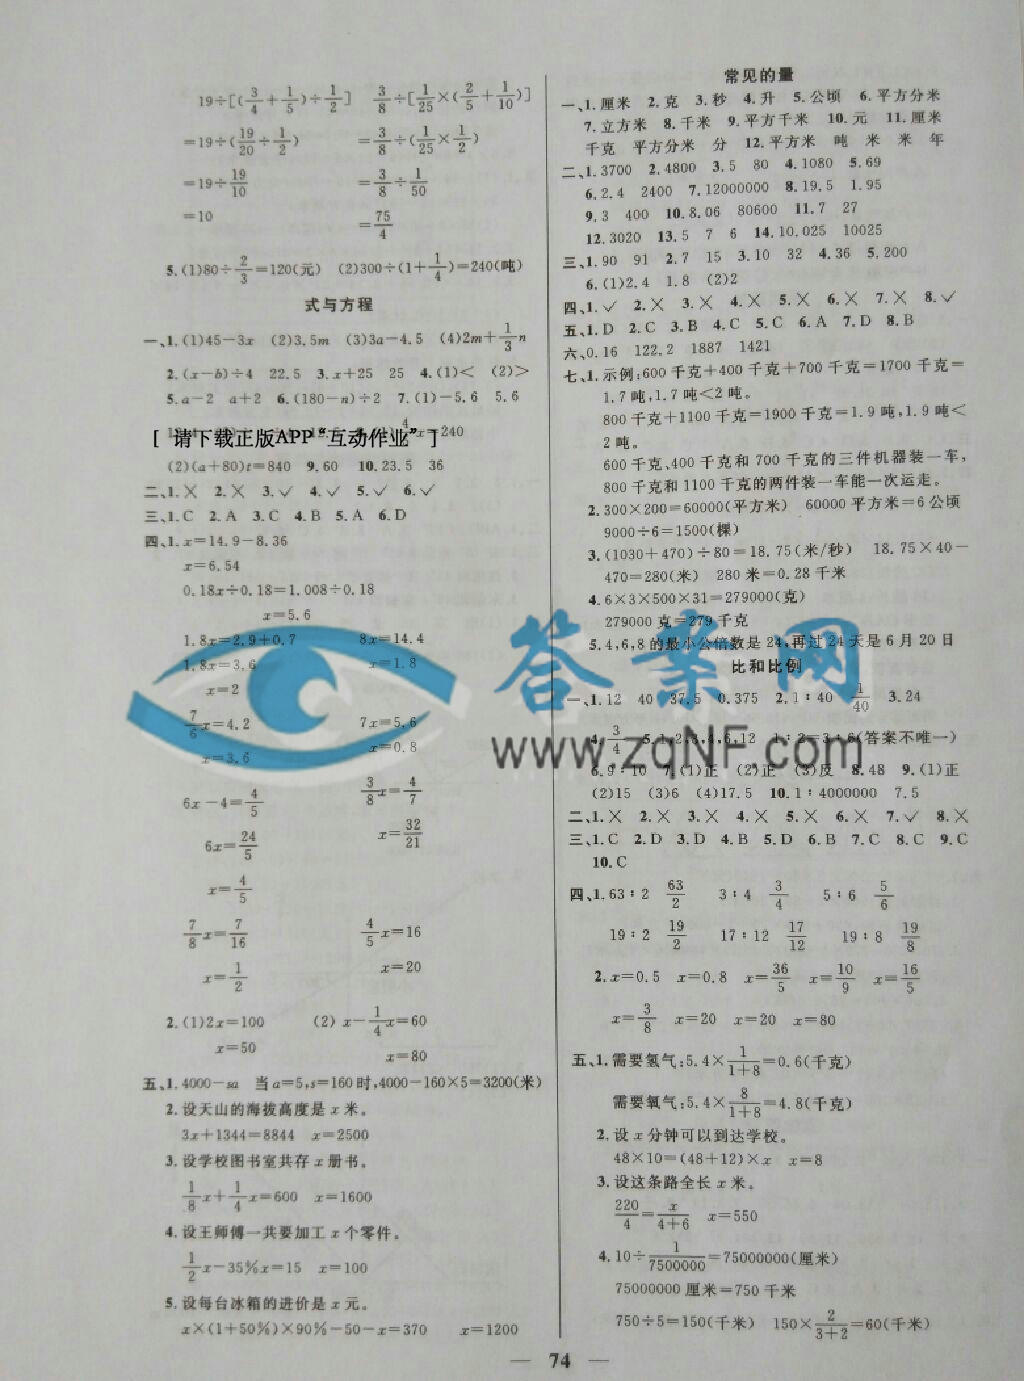 19÷[(3/4+1/5)÷1/2]  3/8÷[1/25×(2/5+1/10)]
=19÷(19/20÷1/2)  =3/8÷(1/25×1/2)
=19÷19/10  =3/8÷1/50
=10  =75/4
5.(1)80÷2/3=120(元)  (2)300÷(1+1/4)=240(吨)
式与方程
一、1.(1)45-3x  (2)3.5m  (3)3a-4.5  (4)2m+1/3n
2.(x-b)÷4  22.5  3.x+25  25  4.(1)<  (2)>
5.a-2  a+2  6.(180-n)÷2  7.(1)-5.6  5.6
[ 请下载正版APP“互动作业” ]
x=240
(2)(a+80)t=840  9.60  10.23.5  36
二、1.╳  2.╳  3.✓  4.✓  5.✓  6.✓
三、1.C  2.A  3.C  4.B  5.A  6.D
四、1.x=14.9-8.36
x=6.54
0.18x÷0.18=1.008÷0.18
x=5.6
1.8x=2.9+0.7  8x=14.4
1.8x=3.6  x=1.8
x=2
7/6x=4.2  7x=5.6
x=3.6  x=0.8
6x-4=4/5  3/8x=4/7
6x=24/5  x=32/21
x=4/5
7/8x=7/16  4/5x=16
x=1/2  x=20
2.(1)2x=100  (2) x-1/4x=60
x=50  x=80
五、1.4000-sa  当a=5,s=160时,4000-160×5=3200(米)
2.设天山的海拔高度是x米。
3x+1344=8844  x=2500
3.设学校图书室共存x册书。
1/8x+1/4x=600  x=1600
4.设王师傅一共要加工x个零件。
1/2x-35%x=15  x=100
5.设每台冰箱的进价是x元。
x×(1+50%)×90%-50-x=370  x=1200
常见的量
一、1.厘米  2.克  3.秒  4.升  5.公顷  6.平方分米
7.立方米  8.千米  9.平方千米  10.元  11.厘米
千克  平方分米  分  12.平方米  吨  米  米  年
二、1.3700  2.4800  3.5  80  4.1080  5.69
6.2.4  2400  7.12000000  8.19.5  1.95
9.3  400  10.8.06  80600  11.7  27
12.3020  13.5  7  6  14.10.025  10025
三、1.90  91  2.7  15  3.10  32  4.36  5.200
6.(1)2.4  1.8  (2)2
四、1.✓  2.╳  3.╳  4.╳  5.╳  6.╳  7.╳  8.✓
五、1.D  2.C  3.B  4.C  5.C  6.A  7.D  8.B
六、0.16  122.2  1887  1421
七、1.示例:600千克+400千克+700千克=1700千克=
1.7吨,1.7吨<2吨。
800千克+1100千克=1900千克=1.9吨,1.9吨<
2吨。
600千克、400千克和700千克的三件机器装一车,
800千克和1100千克的两件装一车能一次运走。
2.300×200=60000(平方米)  60000平方米=6公顷
9000÷6=1500(棵)
3.(1030+470)÷80=18.75(米/秒)  18.75×40-
470=280(米)  280米=0.28千米
4.6×3×500×31=279000(克)
279000克=279千克
5.4,6,8的最小公倍数是24,再过24天是6月20日
比和比例
一、1.12  40  37.5  0.375  2.1∶40  1/40  3.24
4.3/4  5.1,2,3,4,6,12  1∶2=3∶6(答案不唯一)
6.9∶10  7.(1)正  (2)正  (3)反  8.48  9.(1)正
(2)15  (3)6  (4)17.5  10.1∶4000000  7.5
二、1.╳  2.╳  3.╳  4.╳  5.╳  6.╳  7.✓  8.╳
三、1.C  2.D  3.D  4.B  5.D  6.B  7.C  8.C  9.C
10.C
四、1.63∶2  63/2  3∶4  3/4  5∶6  5/6
19∶2  19/2  17∶12  17/12  19∶8  19/8
2.x=0.5  x=0.8  x=36/5  x=10/9  x=16/5
x=3/8  x=20  x=20  x=80
五、1.需要氢气:5.4×1/(1+8)=0.6(千克)
需要氧气:5.4×8/(1+8)=4.8(千克)
2.设x分钟可以到达学校。
48×10=(48+12)×x  x=8
3.设这条路全长x米。
220/4=x/(4+6)  x=550
4.10÷1/7500000=75000000(厘米)
75000000厘米=750千米
750÷5=150(千米)  150×2/(3+2)=60(千米)
— 74 —
答案网
www.zqNF.com